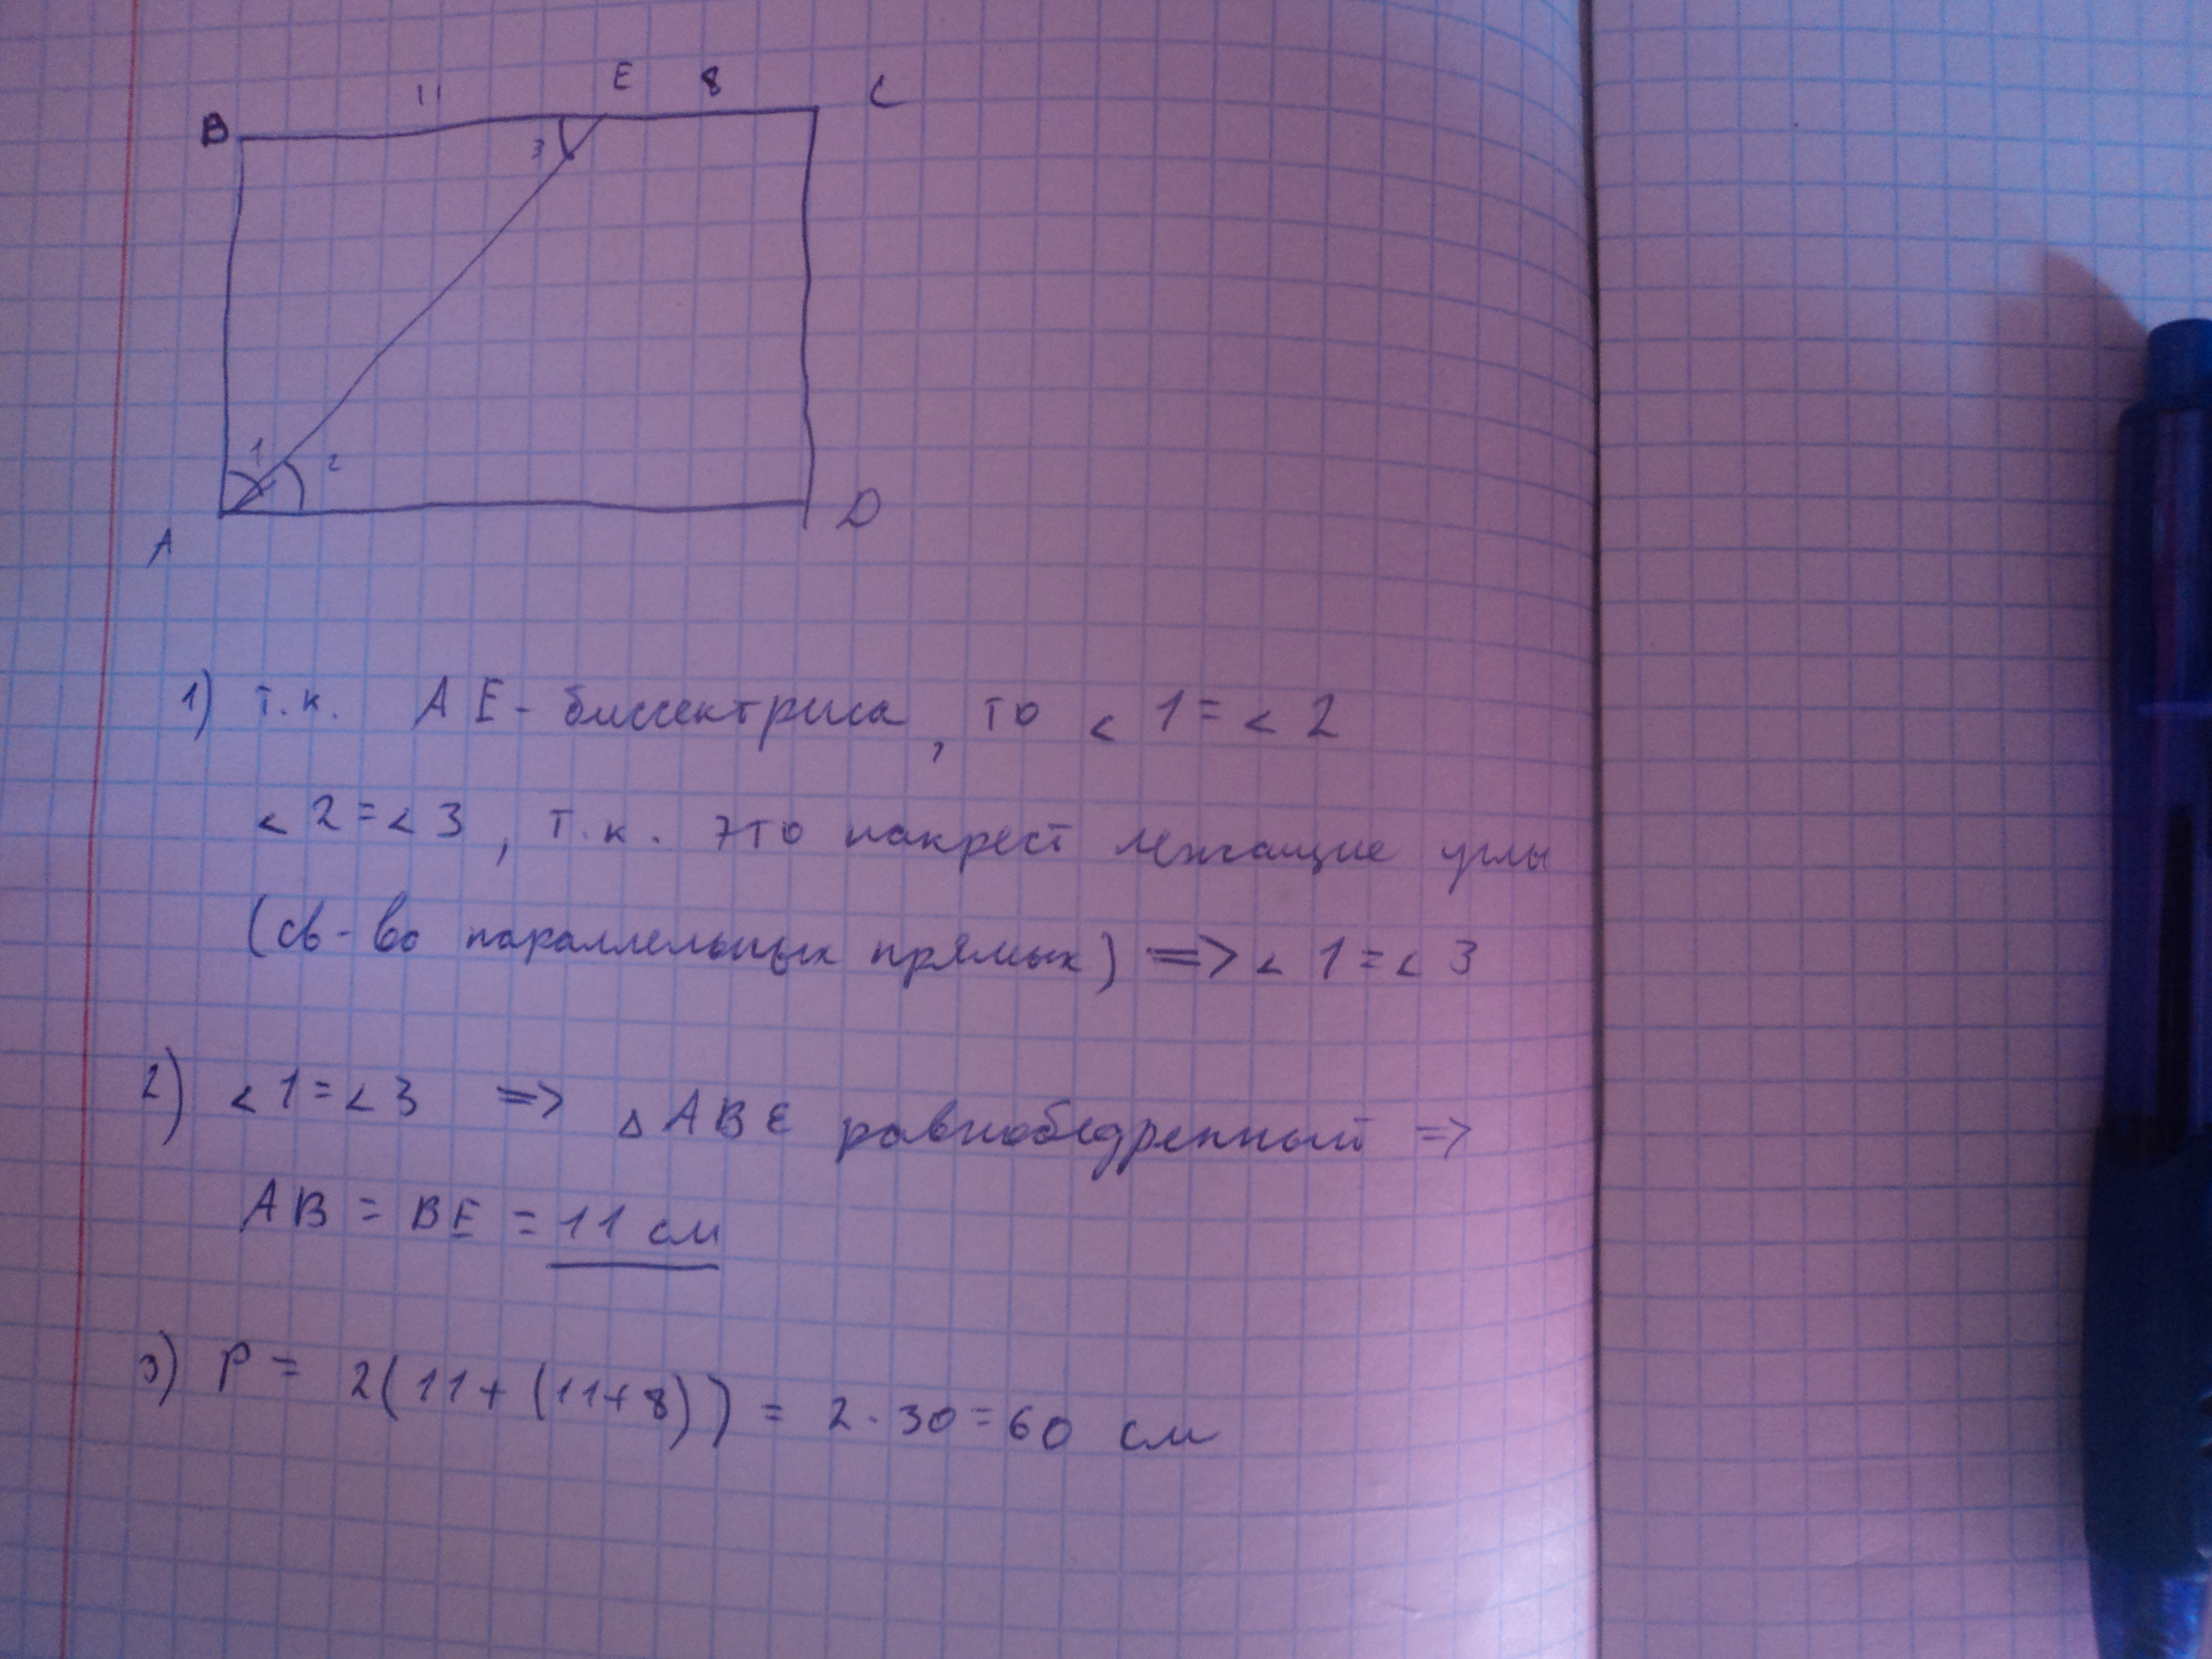 B 11 E 8 C
3
1 2
A D
1) т.к. AE - биссектриса, то < 1 = < 2
< 2 = < 3, т.к. это накрест лежащие углы
(св-во параллельных прямых) => < 1 = < 3
2) < 1 = < 3 => △ABE равнобедренный =>
AB = BE = 11 см
3) P = 2(11+(11+8)) = 2·30=60 см